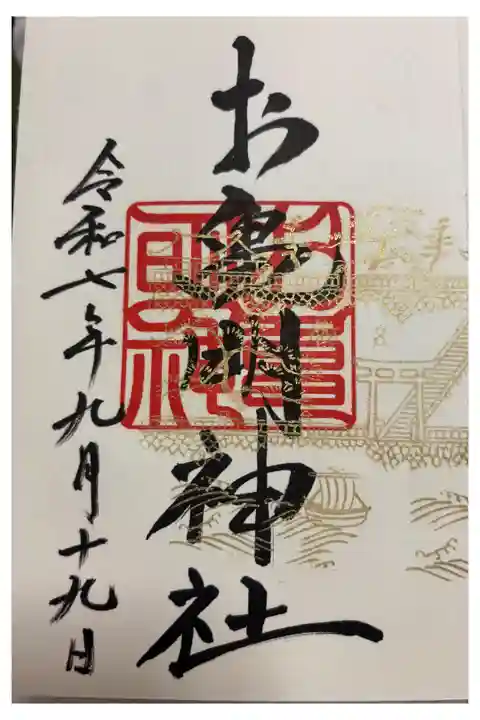 お亀明神社
令和七年九月十九日